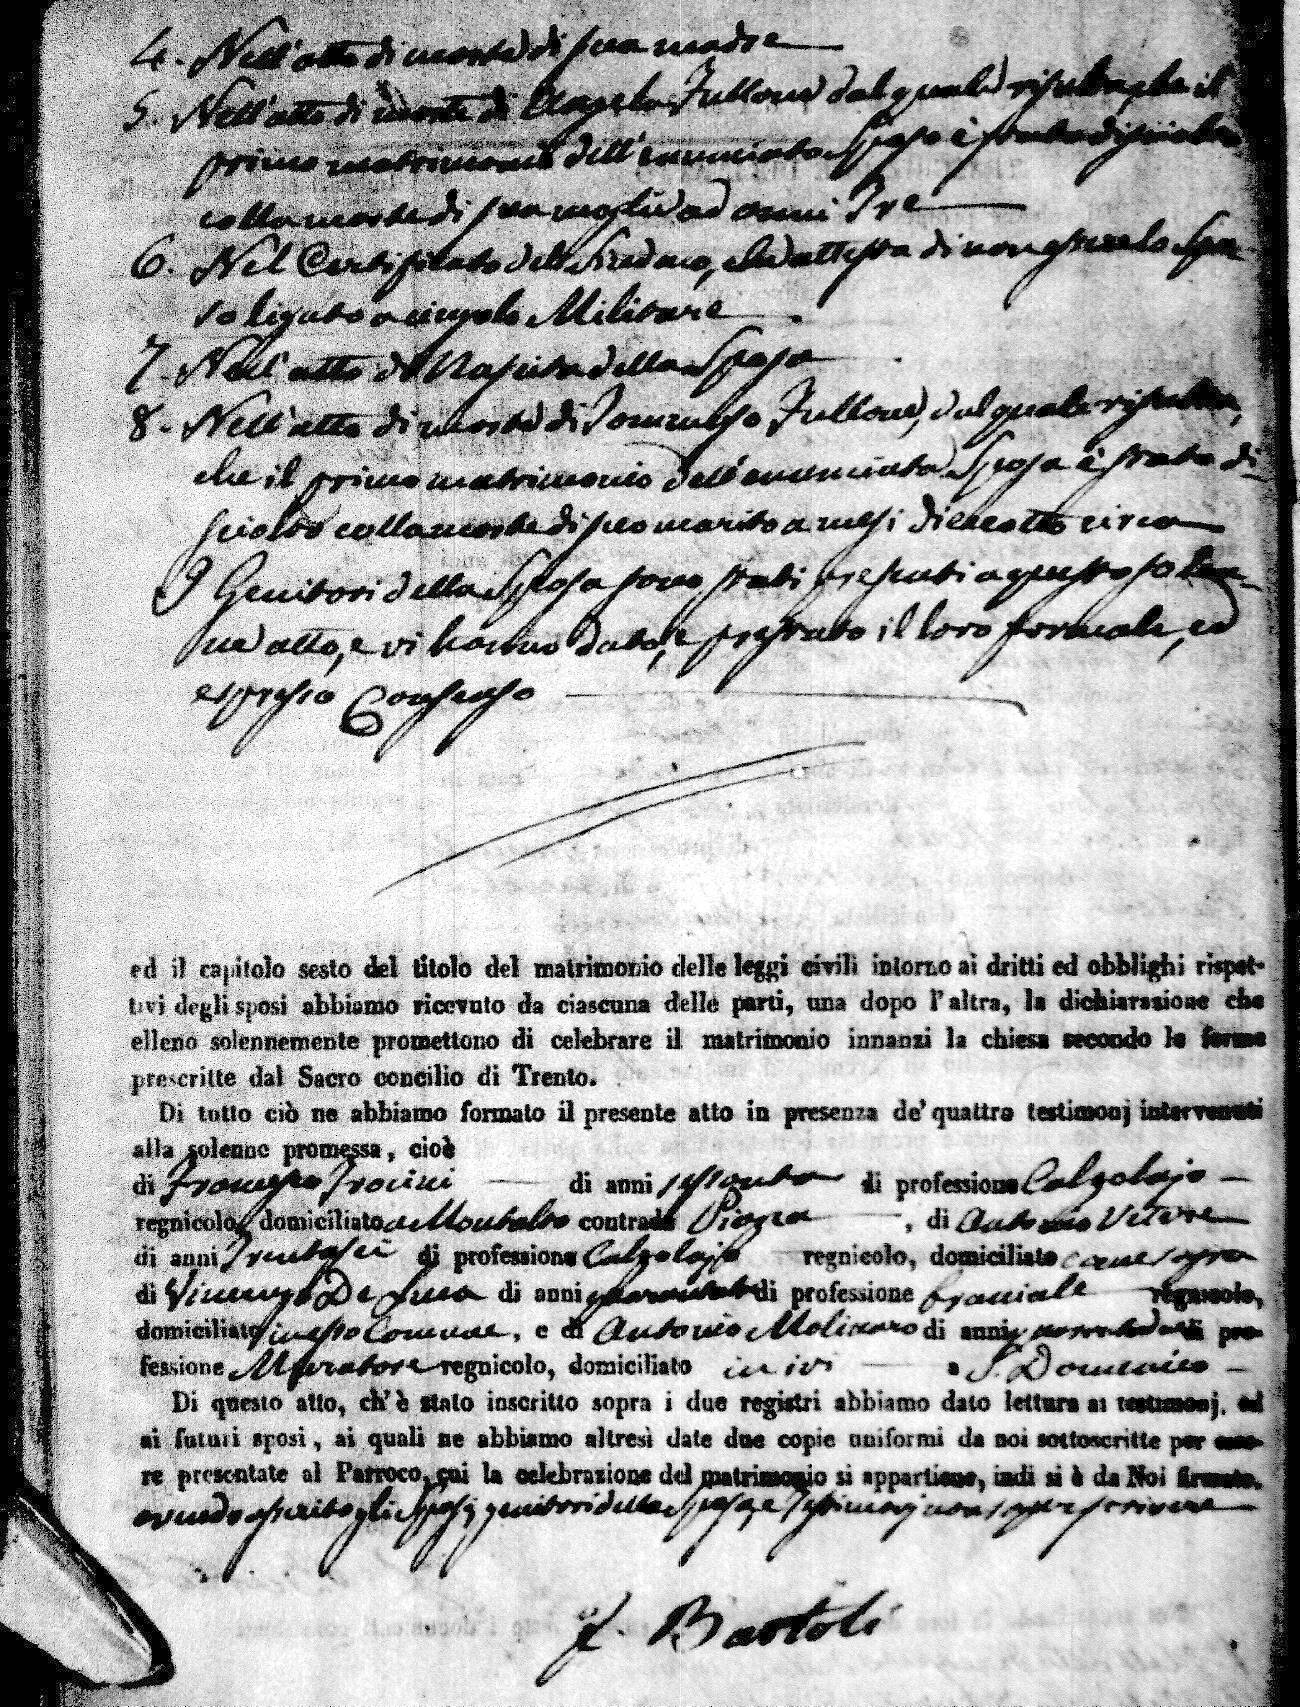 4. Nell'atto di morte di sua madre
5. Nell'atto di morte di Angela Fullone dal quale risulta, che il
primo matrimonio dell'enunciato Sposo è stato disciolto
colla morte di sua moglie ad anni Tre
6. Nel Certificato del Sindaco, che attesta di non essere lo Spo-
so ligato a cingolo Militare
7. Nell'atto di Nascita della Sposa
8. Nell'atto di morte di Tommaso Fullone, dal quale risulta,
che il primo matrimonio dell'enunciata Sposa è stato di-
sciolto colla morte di suo marito a mesi dieciotto circa
I Genitori della Sposa sono stati presenti a questo solen-
ne atto, e vi hanno dato, e prestato il loro formale, ed
espresso Consenso
ed il capitolo sesto del titolo del matrimonio delle leggi civili intorno ai dritti ed obblighi rispet-
tivi degli sposi abbiamo ricevuto da ciascuna delle parti, una dopo l'altra, la dichiarazione che
elleno solennemente promettono di celebrare il matrimonio innanzi la chiesa secondo le forme
prescritte dal Sacro concilio di Trento.
Di tutto ciò ne abbiamo formato il presente atto in presenza de' quattro testimonj intervenuti
alla solenne promessa, cioè
di Francesco Trocini di anni sessanta di professione Calzolajo
regnicolo, domiciliato a Montalto contrada Piazza, di Antonio Vetere
di anni Trentasei di professione Calzolajo regnicolo, domiciliato come sopra
di Vincenzo De Luca di anni quaranta di professione braciale regnicolo,
domiciliato in esso Comune, e di Antonio Molinaro di anni di pro-
fessione Muratore regnicolo, domiciliato in ivi a S. Domenico
Di questo atto, ch'è stato inscritto sopra i due registri abbiamo dato lettura ai testimonj, ed
ai futuri sposi, ai quali ne abbiamo altresì date due copie uniformi da noi sottoscritte per esse-
re presentate al Parroco, cui la celebrazione del matrimonio si appartiene, indi si è da Noi firmato.
avendo asserito gli Sposi, genitori della Sposa, e Testimonj non saper scrivere
F. Bartoli